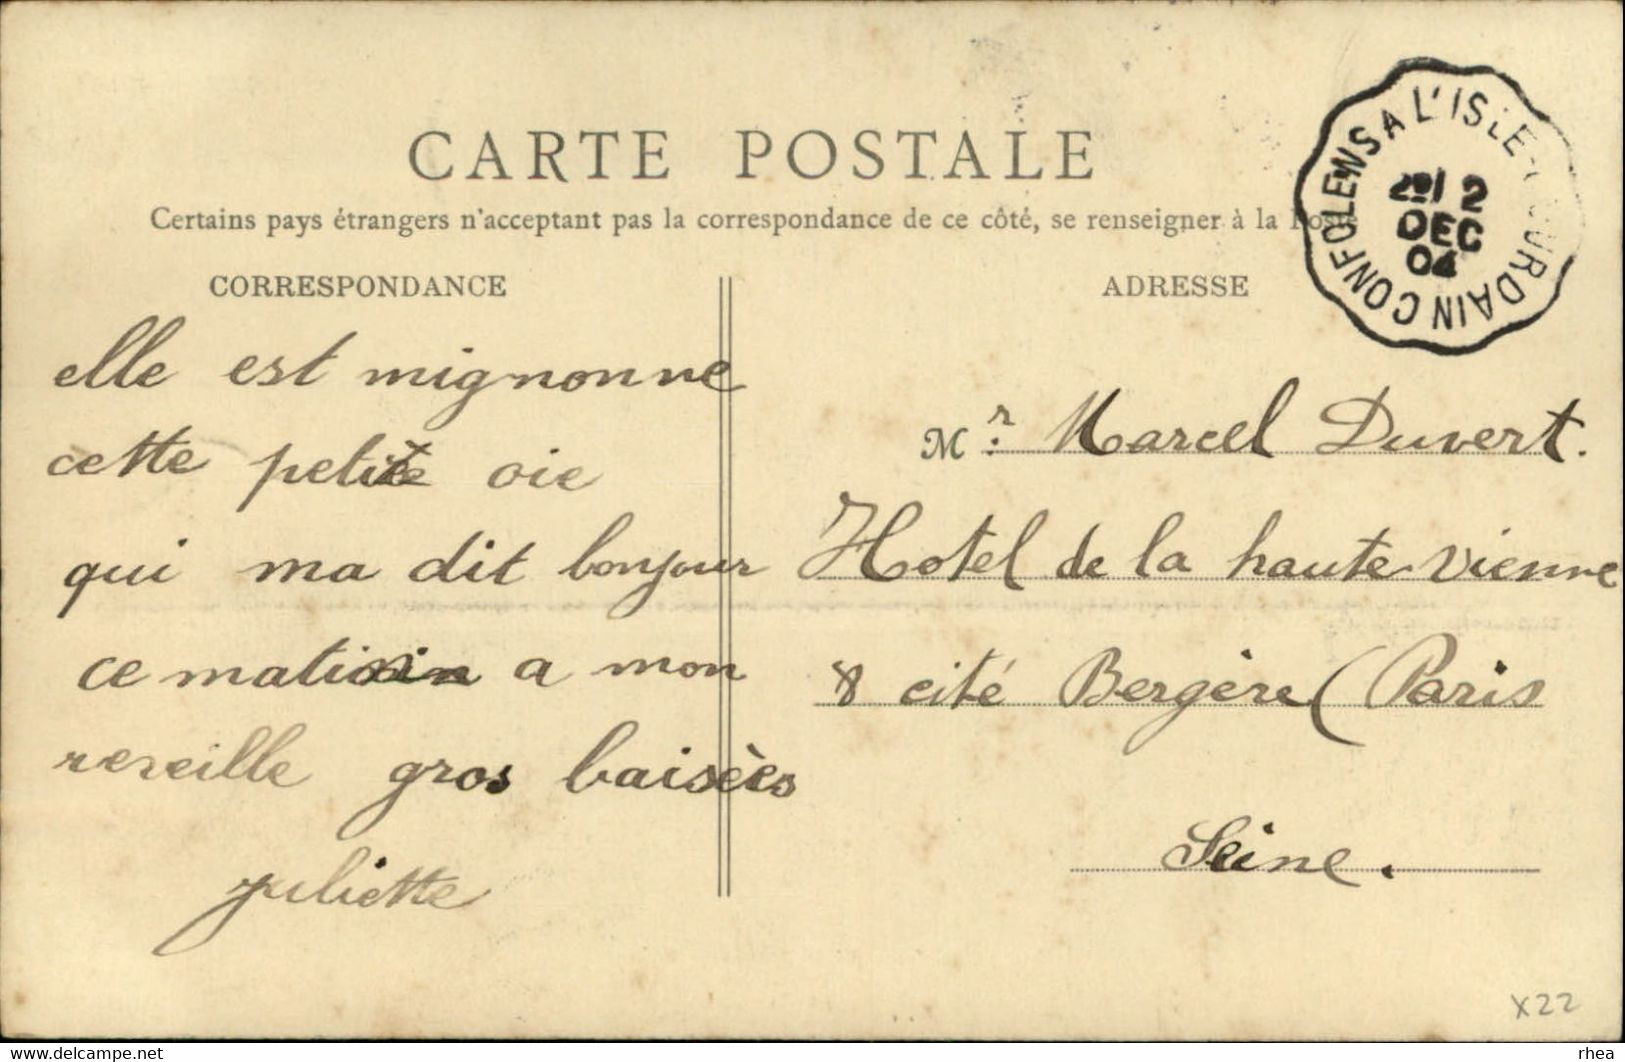 CARTE POSTALE
Certains pays étrangers n'acceptant pas la correspondance de ce côté, se renseigner à la Poste
CORRESPONDANCE
elle est mignonne
cette petite oie
qui ma dit bonjour
ce matin a mon
reveille gros baisèes
juliette
ADRESSE
Mr. Marcel Duvert.
Hotel de la haute Vienne
8 cité Bergère (Paris
Seine.
CONFOLENS A L'ISLE-JOURDAIN
2 DEC 04
X22
www.delcampe.net
rhea